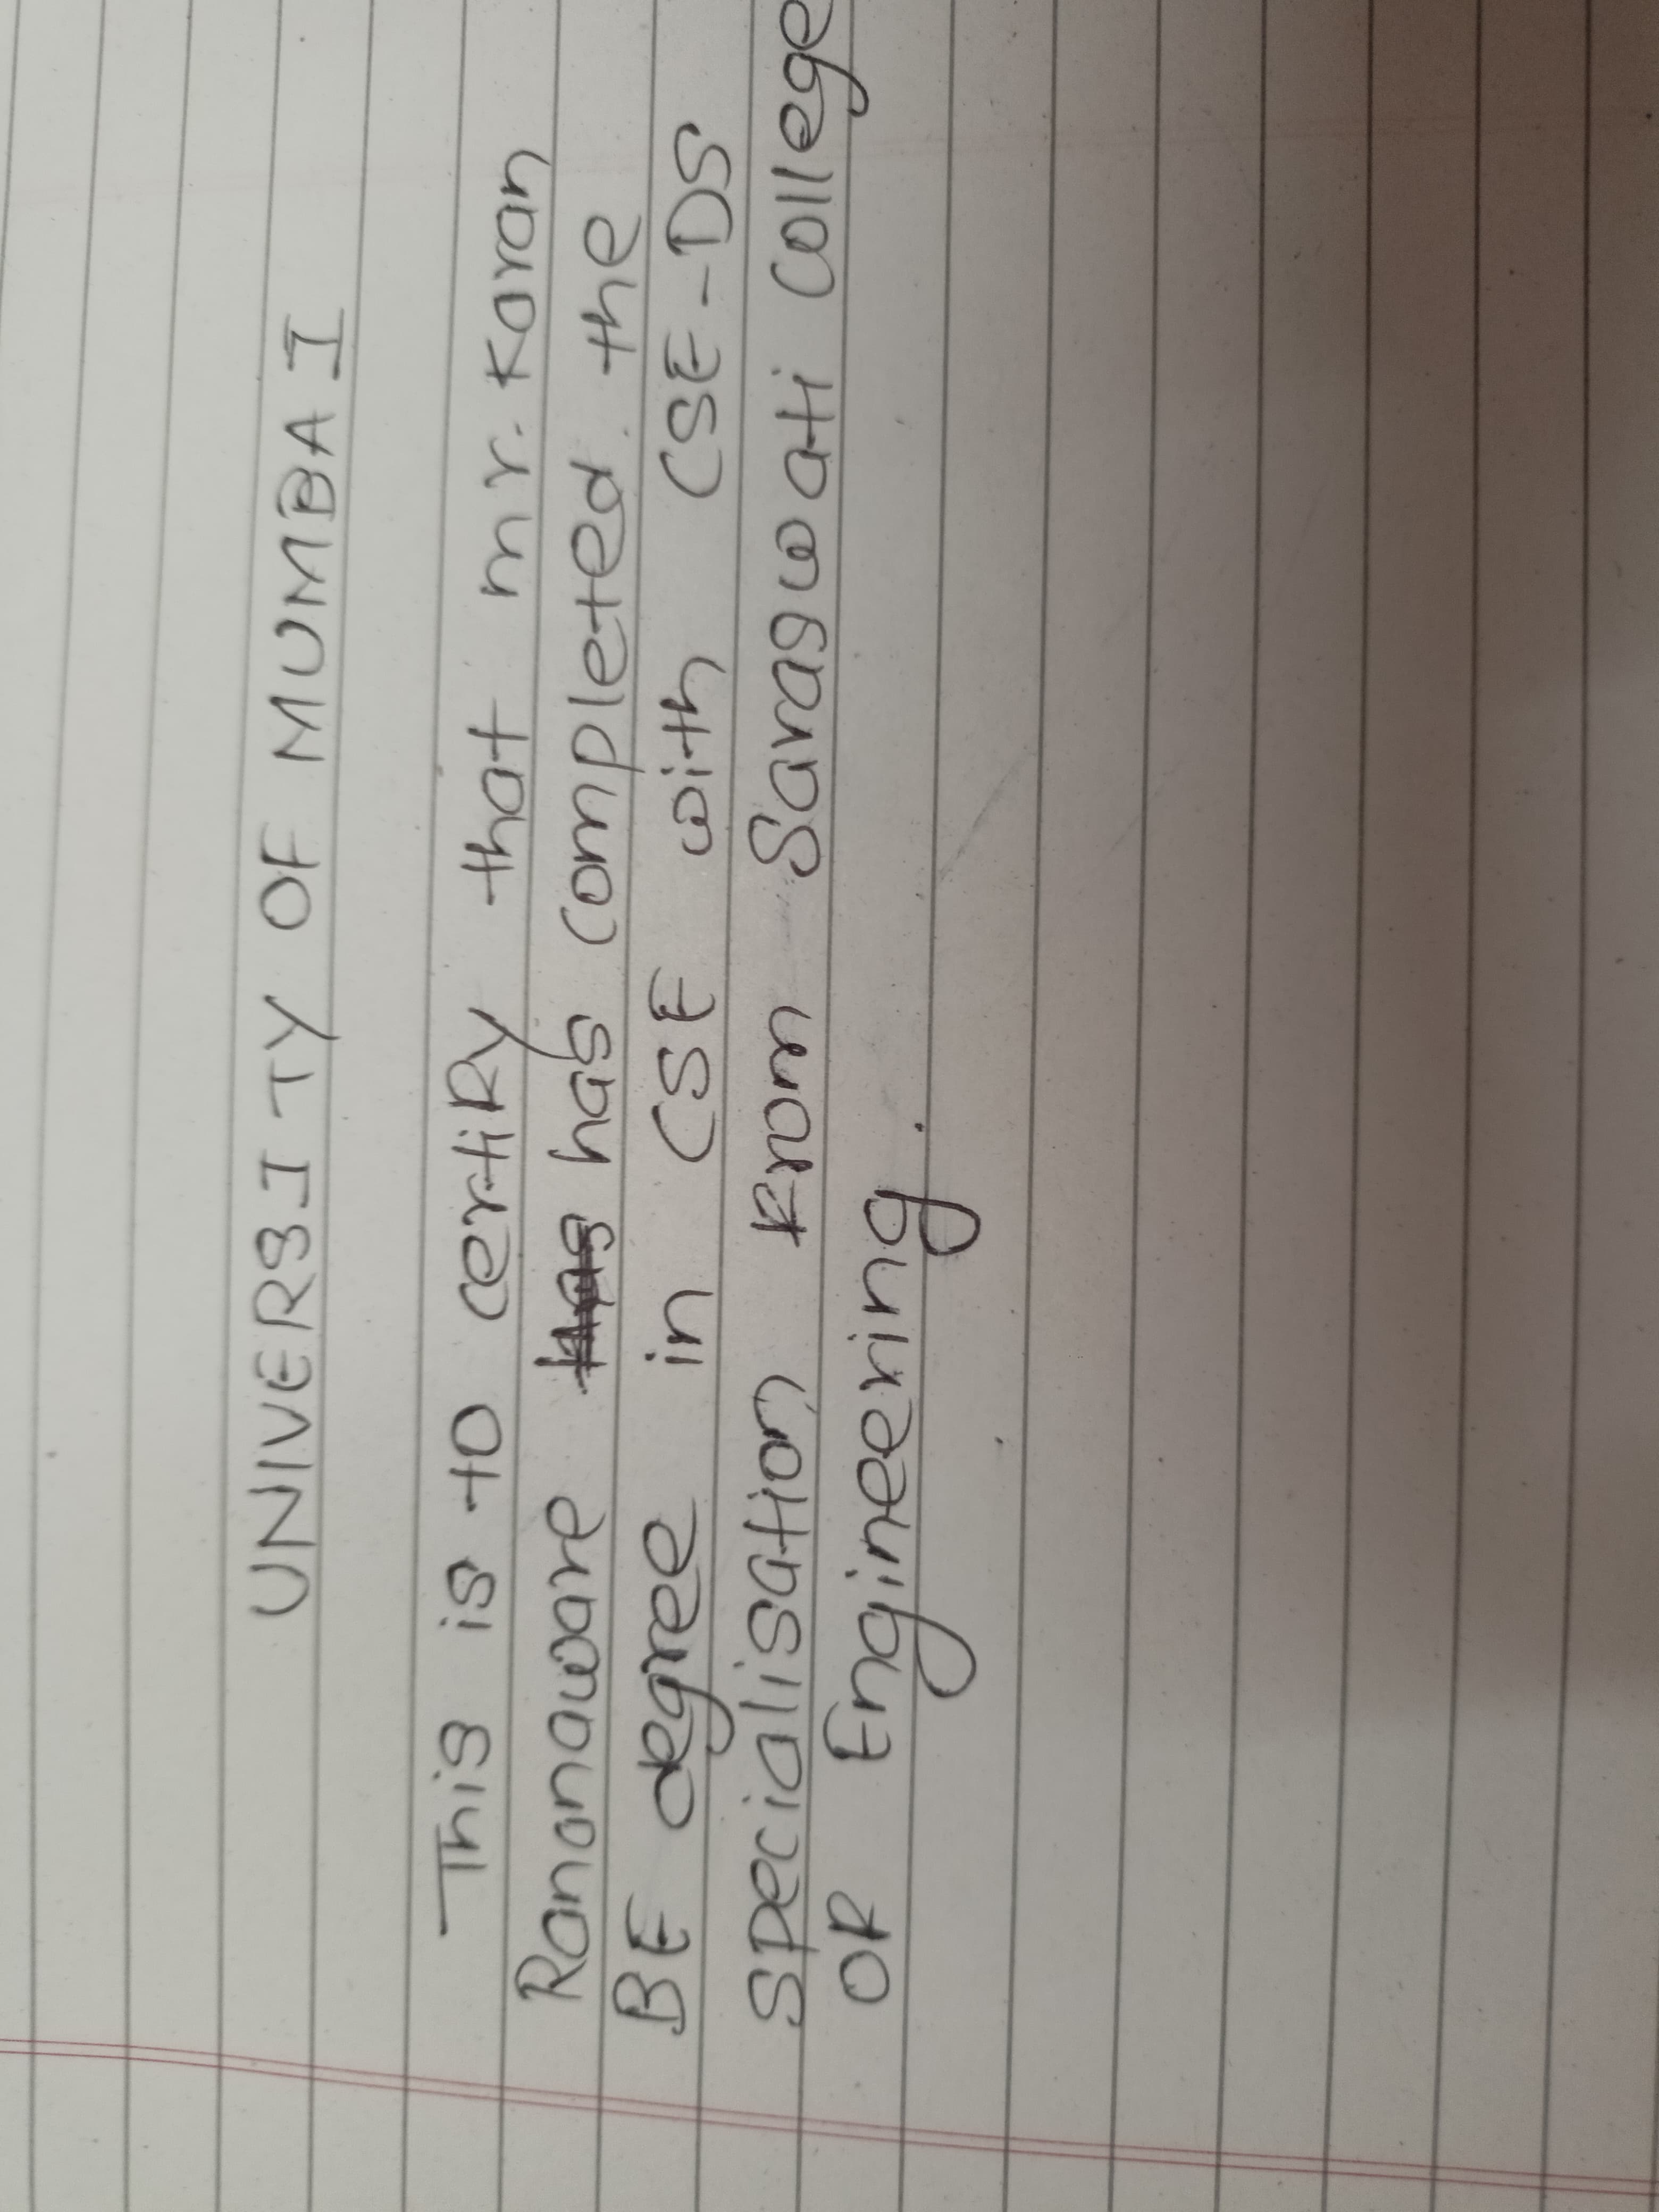 UNIVERSITY OF MUMBAI
This is to certify that mr. Karan
Rananaware has completed the
BE degree in CSE with CSE-DS
specialisation from Saraswati College
of Engineering.